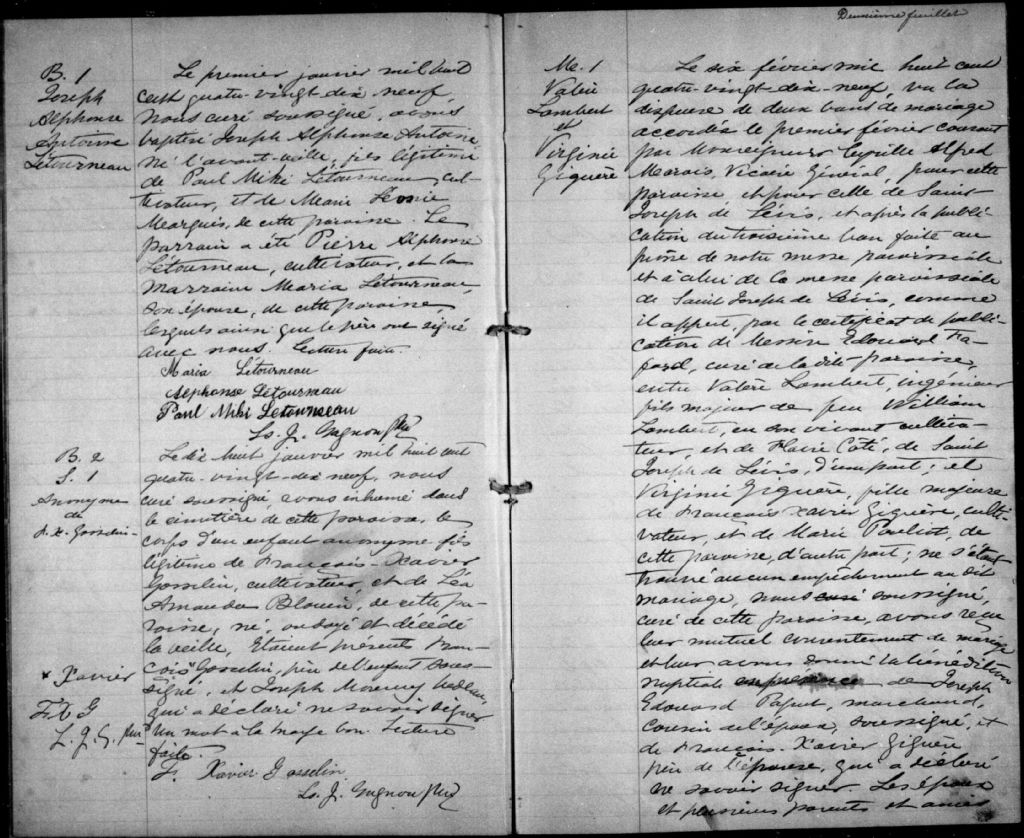 B. 1
Joseph
Alphonse
Antoine
Létourneau
Le premier janvier mil huit
cent quatre-vingt dix neuf,
nous curé soussigné, avons
baptisé Joseph Alphonse Antoine
né l'avant-veille, fils légitime
de Paul Miki Létourneau, cul-
tivateur, et de Marie Léonie
Marquis, de cette paroisse. Le
parrain a été Pierre Alphonse
Létourneau, cultivateur, et la
marraine Maria Létourneau,
son épouse, de cette paroisse,
lesquels ainsi que le père ont signé
avec nous. Lecture faite.
Maria Létourneau
Alphonse Létourneau
Paul Miki Letourneau
Ls. J. Gagnon Ptre
B. 2
S. 1
Anonyme
de
F. X. Gosselin
Le dix huit janvier mil huit cent
quatre-vingt-dix neuf, nous
curé soussigné, avons inhumé dans
le cimetière de cette paroisse, le
corps d'un enfant anonyme fils
légitime de François-Xavier
Gosselin, cultivateur, et de Léa
Amanda Blouin, de cette pa-
roisse, né, ondoyé et décédé
la veille, Etaient présents Fran-
çois * Gosselin, père de l'enfant sous-
signé, et Joseph Nadeau,
qui a déclaré ne savoir signer
Un mot à la marge bon. Lecture
faite.
* Xavier
F. X. G
L. J. G. Ptre
F. Xavier Gosselin
Ls. J. Gagnon Ptre
Deuxième feuillet
M. 1
Valère
Lambert
et
Virginie
Giguère
Le six février mil huit cent
quatre-vingt-dix-neuf, vu la
dispense de deux bans de mariage
accordée le premier février courant
par Monseigneur Cyrille Alfred
Marois, Vicaire Général, pour cette
paroisse et pour celle de Saint
Joseph de Lévis, et après la publi-
cation du troisième ban faite au
prône de notre messe paroissiale
et à celui de la messe paroissiale
de Saint Joseph de Lévis, comme
il appert, par le certificat de publi-
cation de Messire Edouard Fa-
fard, curé de la dite paroisse,
entre Valère Lambert, ingénieur
fils majeur de feu William
Lambert, en son vivant cultiva-
teur, et de Flavie Côté, de Saint
Joseph de Lévis, d'une part; et
Virginie Giguère, fille majeure
de François Xavier Giguère, culti-
vateur, et de Marie Pouliot, de
cette paroisse, d'autre part; ne s'étant
trouvé aucun empêchement au dit
mariage, nous curé soussigné,
curé de cette paroisse, avons reçu
leur mutuel consentement de mariage
et leur avons donné la bénédiction
nuptiale en présence de Joseph
Edouard Paquet, marchand,
cousin de l'époux, soussigné, et
de François-Xavier Giguère
père de l'épouse, qui a déclaré
ne savoir signer. Les époux
et plusieurs parents et amis